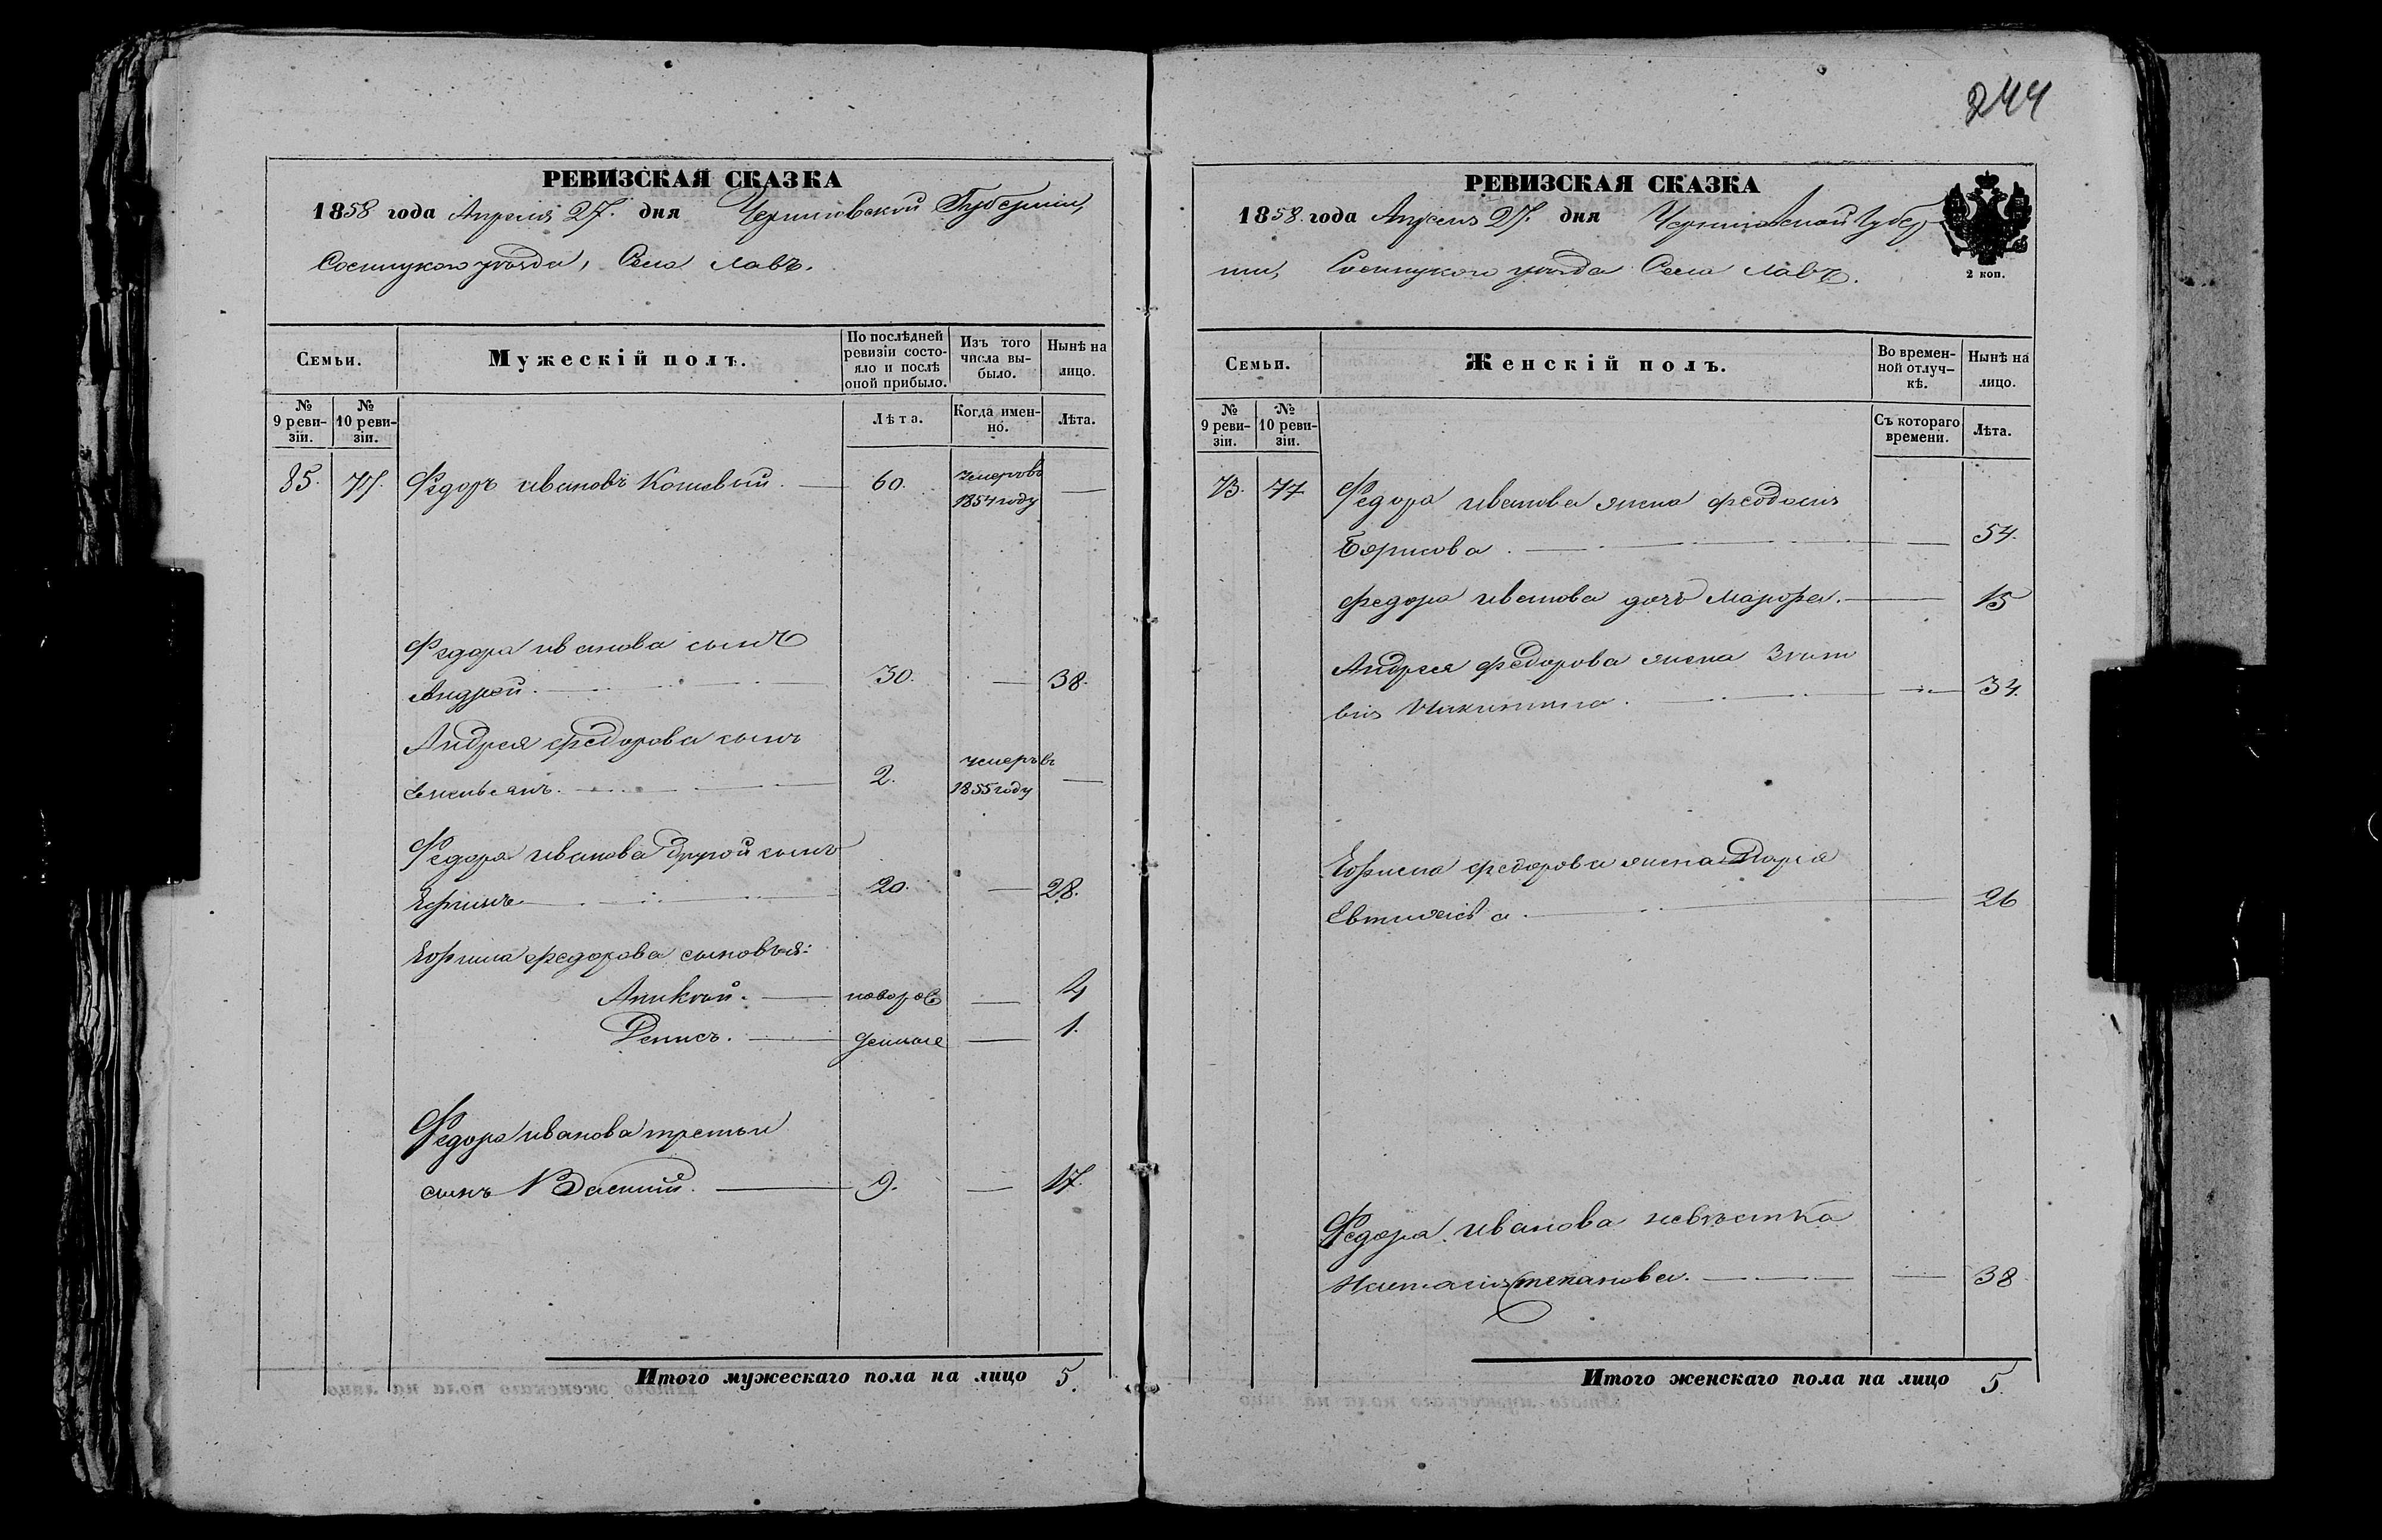 244
РЕВИЗСКАЯ СКАЗКА
1858 года Апреля 27. дня Черниговской Губернии,
Сосницкого уезда, Села Лавъ.
Семьи.
Мужескій полъ.
По послѣдней ревизіи состояло и послѣ оной прибыло.
Изъ того числа выбыло.
Нынѣ на лицо.
№ 9 ревизіи.
№ 10 ревизіи.
Лѣта.
Когда именно.
Лѣта.
85. 77. Федоръ Ивановъ Кошевый. 60. умеръ въ 1854 году
Федора Иванова сынъ
Андрей. 30. 38.
Андрея Федорова сынъ
Емельянъ. 2. умеръ въ 1855 году
Федора Иванова другой сынъ
Ефимъ 20. 28.
Ефима Федорова сыновья:
Аникѣй. новорож 4
Денисъ. денные 1.
Федора Иванова третьи
сынъ Василий. 9. 17.
Итого мужескаго пола на лицо 5.
РЕВИЗСКАЯ СКАЗКА
1858. года Апреля 27. дня Черниговской Губер
нии, Сосницкого уезда Села Лавъ.
2 коп.
Семьи.
Женскій полъ.
Во временной отлучкѣ.
Нынѣ на лицо.
№ 9 ревизіи.
№ 10 ревизіи.
Съ котораго времени.
Лѣта.
77 Федора Иванова жена Феодосия
Борисова. 54.
Федора Иванова дочь Марфа. 15
Андрея Федорова жена
34.
Ефима Федорова жена Дарія
26
Федора Иванова невѣстка
Настасія Степанова. 38
Итого женскаго пола на лицо 5.